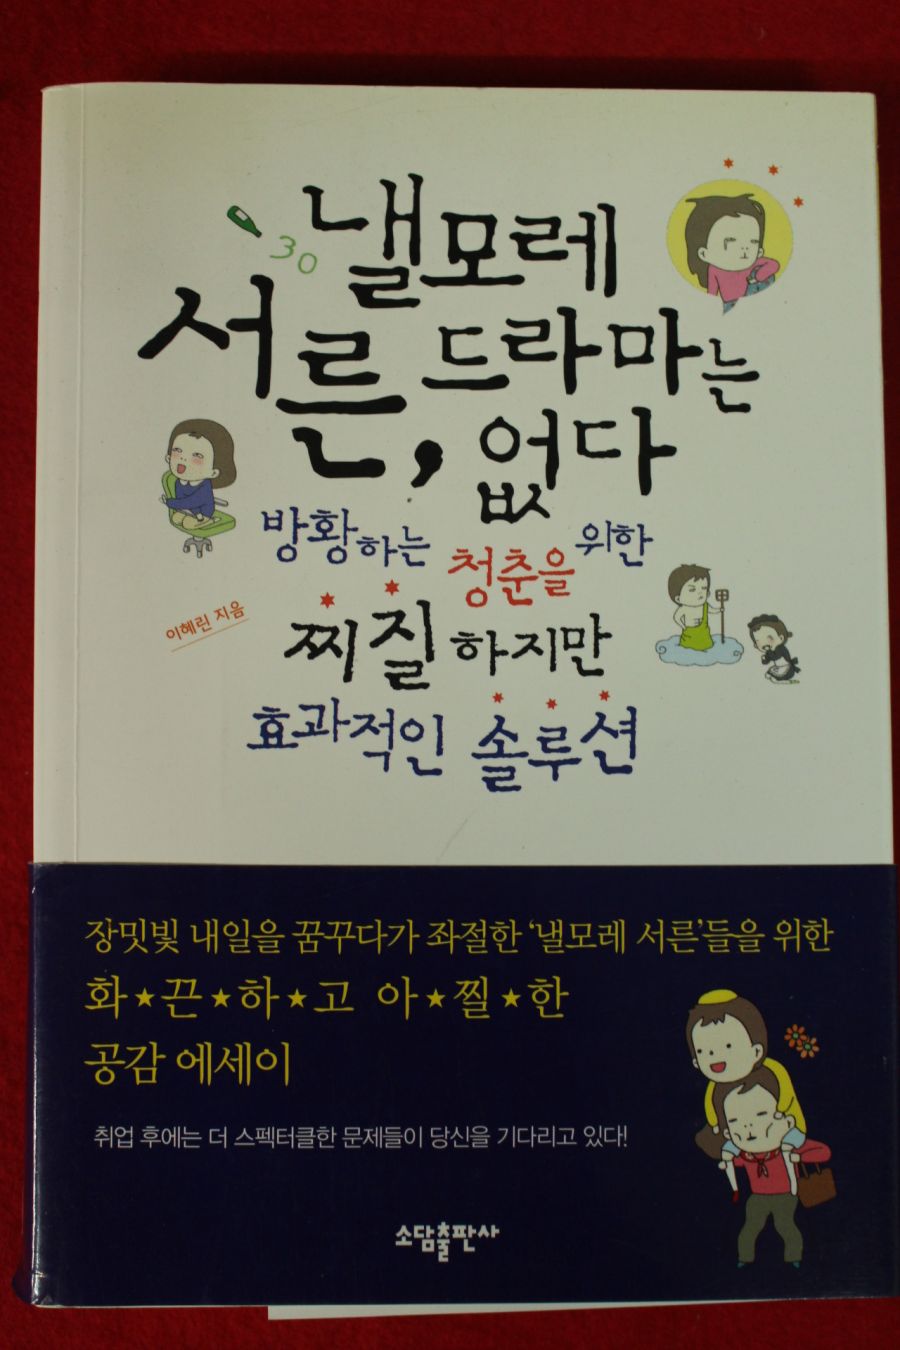 30
낼모레
서른, 드라마는
없다
방황하는 청춘을 위한
찌질하지만
효과적인 솔루션
이혜린 지음
장밋빛 내일을 꿈꾸다가 좌절한 ‘낼모레 서른’들을 위한
화★끈★하★고 아★찔★한
공감 에세이
취업 후에는 더 스펙터클한 문제들이 당신을 기다리고 있다!
소담출판사